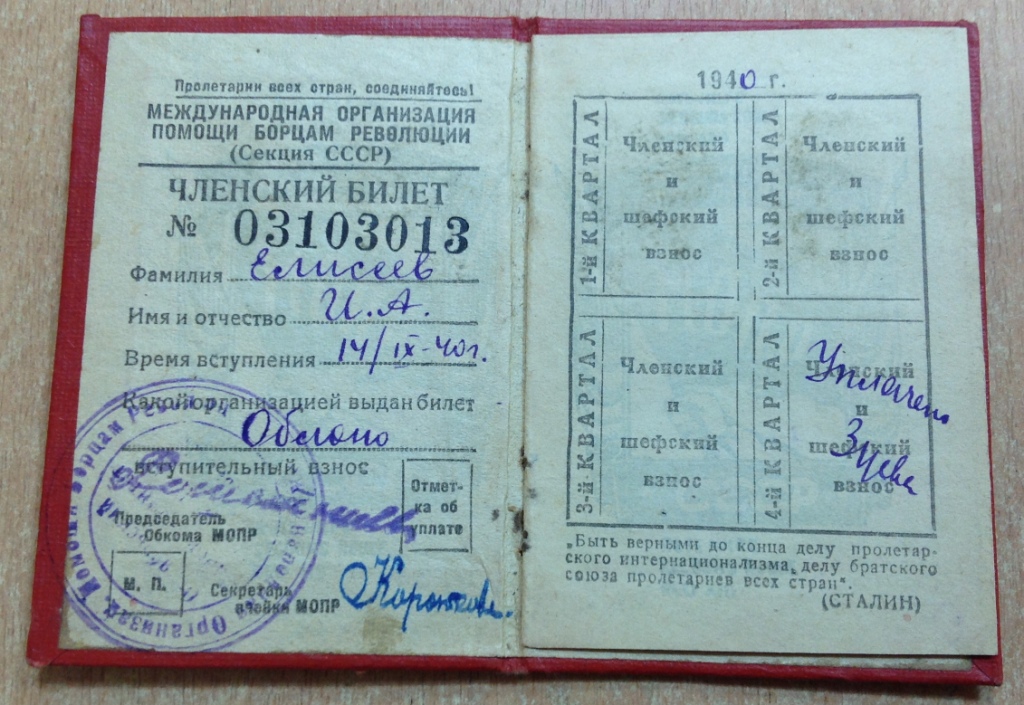 Пролетарии всех стран, соединяйтесь!
МЕЖДУНАРОДНАЯ ОРГАНИЗАЦИЯ
ПОМОЩИ БОРЦАМ РЕВОЛЮЦИИ
(Секция СССР)
ЧЛЕНСКИЙ БИЛЕТ
№ 03103013
Фамилия Елисеев
Имя и отчество И. А.
Время вступления 14/IX-40 г.
Какой организацией выдан билет
Облоно
вступительный взнос
Отмет-
ка об
уплате
Председатель
Обкома МОПР
М. П.
Секретарь
ячейки МОПР
1940 г.
1-й КВАРТАЛ
Членский
и
шефский
взнос
2-й КВАРТАЛ
Членский
и
шефский
взнос
3-й КВАРТАЛ
Членский
и
шефский
взнос
4-й КВАРТАЛ
Членский
и
шефский
взнос
Уплачено
„Быть верными до конца делу пролетар-
ского интернационализма, делу братского
союза пролетариев всех стран".
(СТАЛИН)